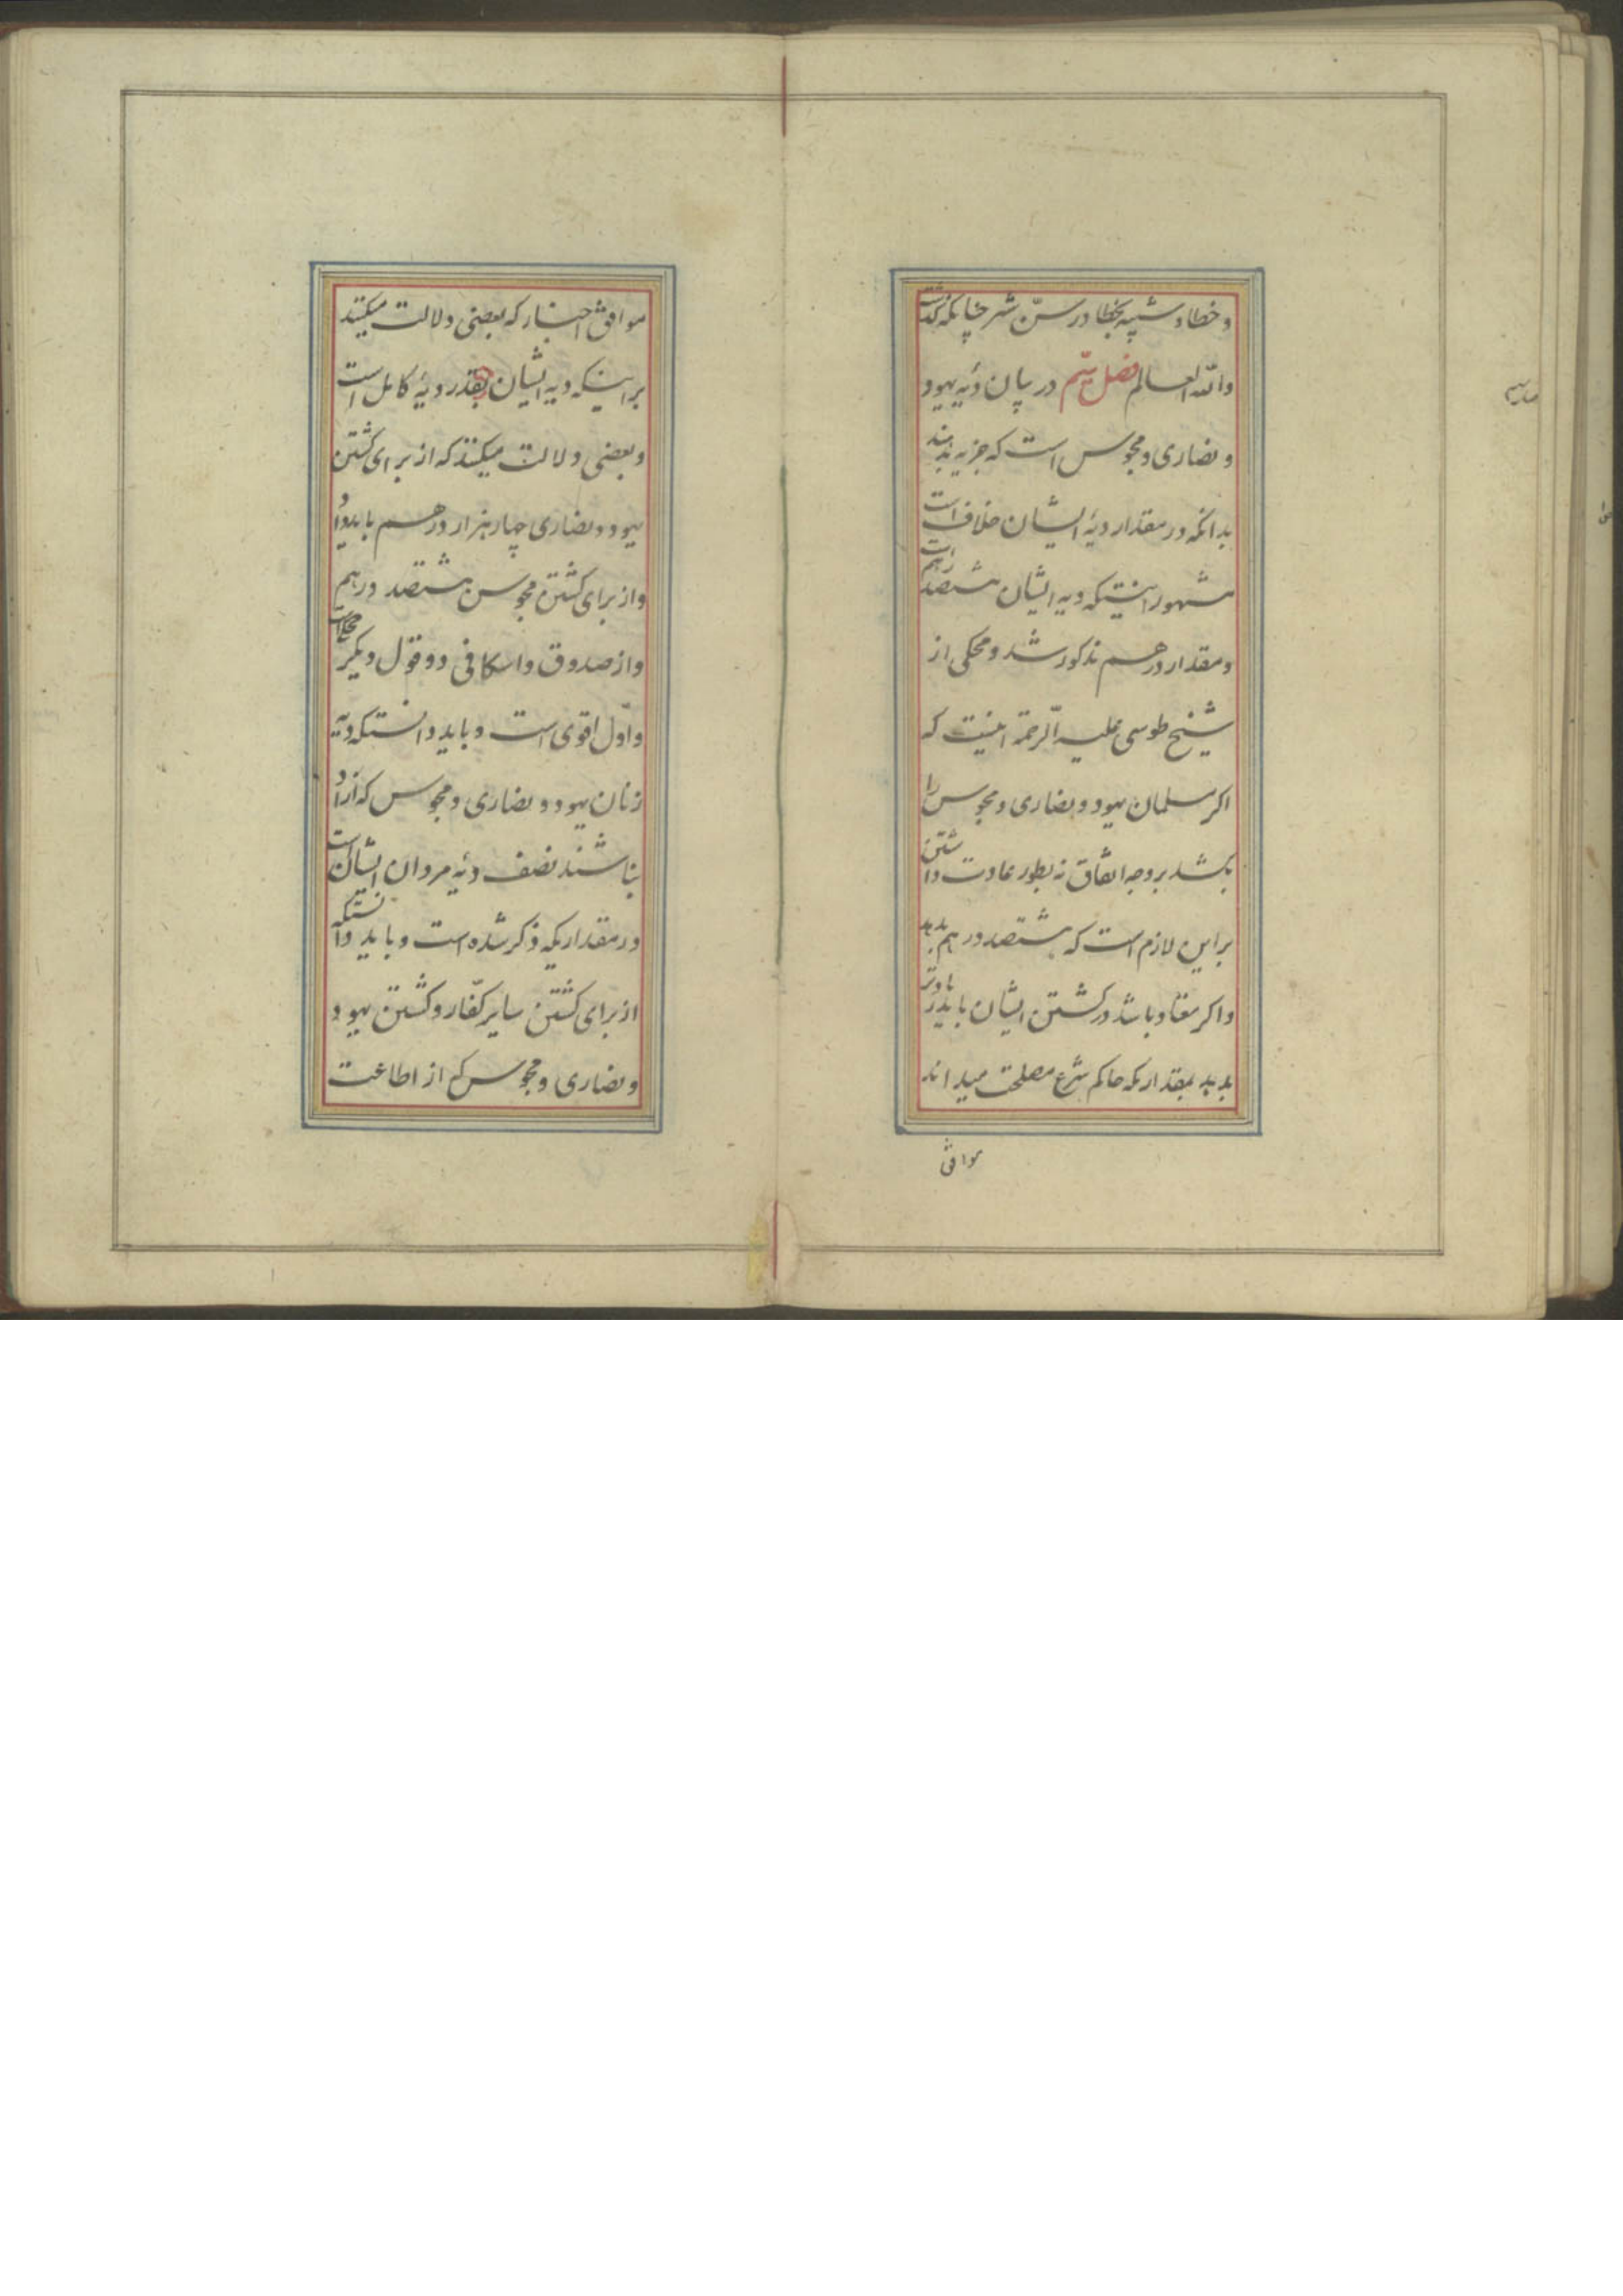 و خطا و شبیه بخطا در سنّ شتر چنانکه گذشت
والله العالم فصل سیّم در بیان دیهٔ یهود
و نصاری و مجوس است که جزیه بدهند
بدانکه در مقدار دیهٔ ایشان خلاف است
مشهور اینستکه دیه ایشان هشتصد درهم است
و مقدار درهم مذکور شد و محکی از
شیخ طوسی علیه الرّحمة اینست که
اکر مسلمان یهود و نصاری و مجوس را
بکشد بر وجه اتفاق نه بطور عادت داشتن
بر این لازم است که هشتصد درهم بدهد
و اکر معتاد باشد در کشتن ایشان باید زیادتر
بدهد بمقداریکه حاکم شرع مصلحت میداند
موافق
موافق اخبار که بعضی دلالت میکنند
بر اینکه دیه ایشان بقدر دیهٔ کامل است
و بعضی دلالت میکنند که از برای کشتن
یهود و نصاری چهار هزار درهم باید داد
و از برای کشتن مجوس هشتصد درهم
و از صدوق و اسکافی دو قول دیکر محکی است
و اوّل اقوی است و باید دانستکه دیّه
زنان یهود و نصاری و مجوس که آزاد
بناشند نصف دیهٔ مردان ایشان است
در مقداریکه ذکر شده است و باید دانستکه
از برای کشتن سایر کفّار و کشتن یهود
و نصاری و مجوس که از اطاعت